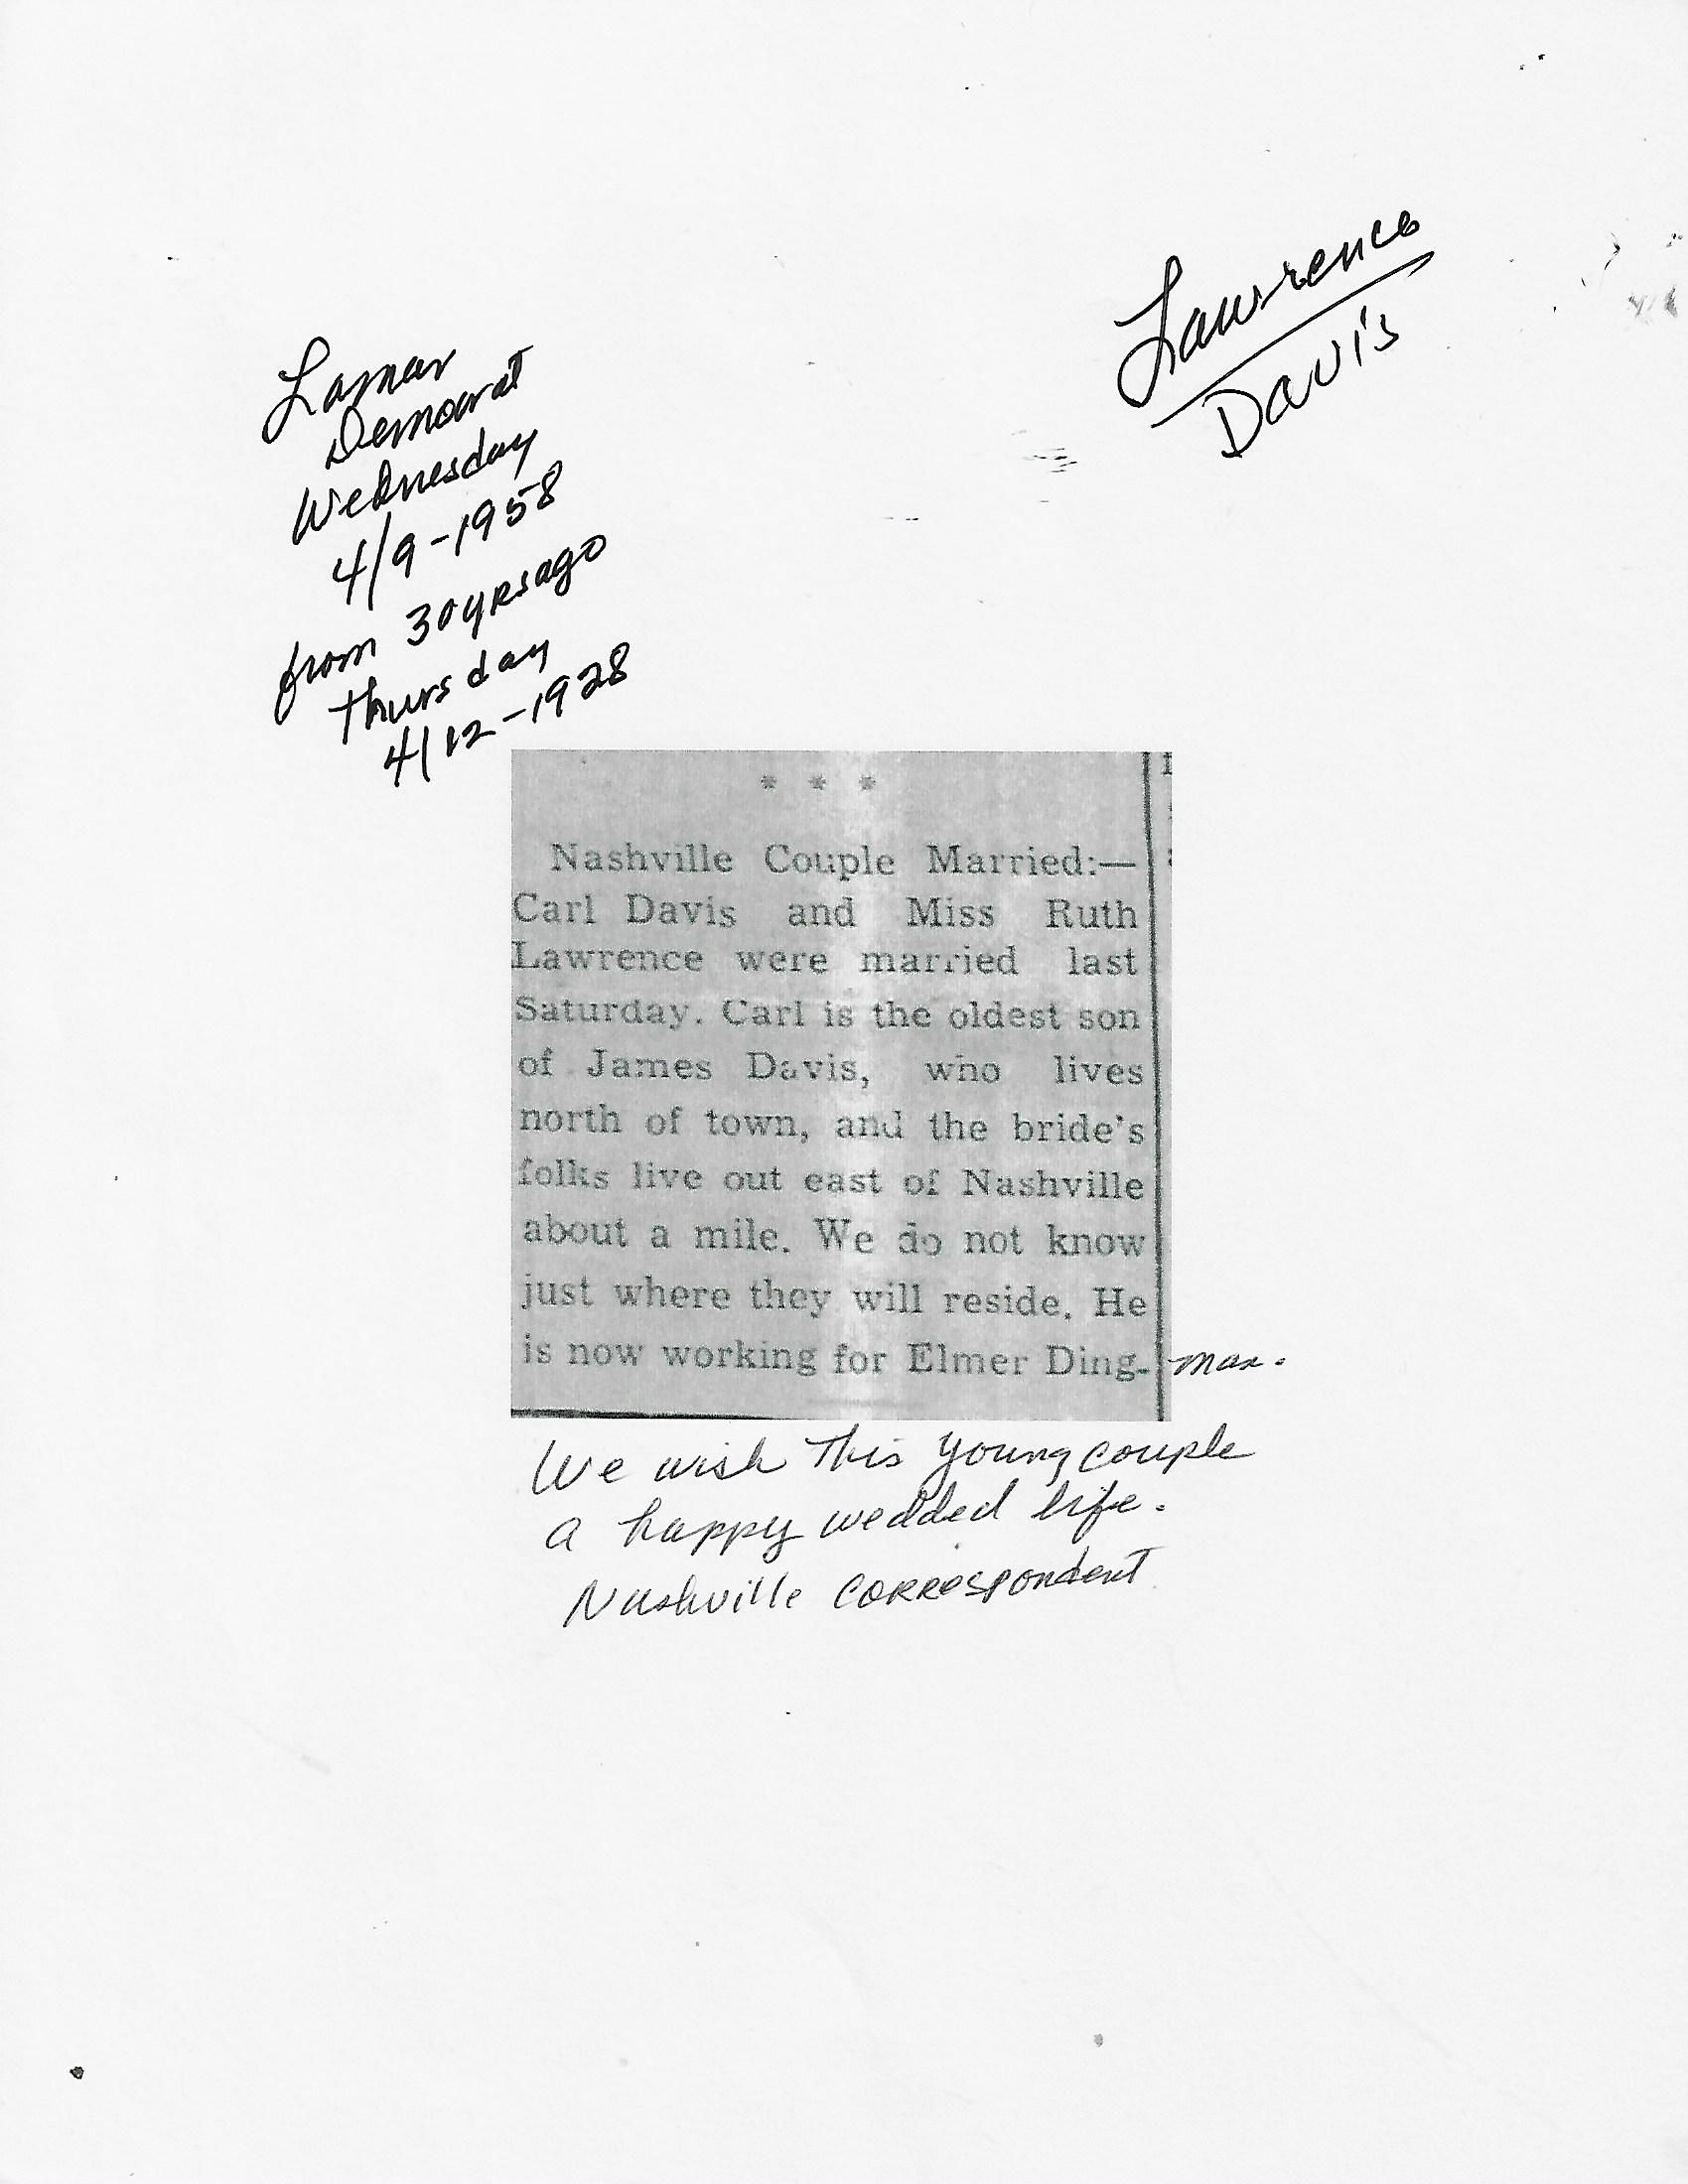 Lawrence
Davis
Lamar
Democrat
Wednesday
4/9-1958
from 30 yrs ago
Thursday
4/12-1928
* * *
Nashville Couple Married:—
Carl Davis and Miss Ruth
Lawrence were married last
Saturday. Carl is the oldest son
of James Davis, who lives
north of town, and the bride's
folks live out east of Nashville
about a mile. We do not know
just where they will reside. He
is now working for Elmer Ding-man.
We wish This young couple
a happy wedded life.
Nashville Correspondent